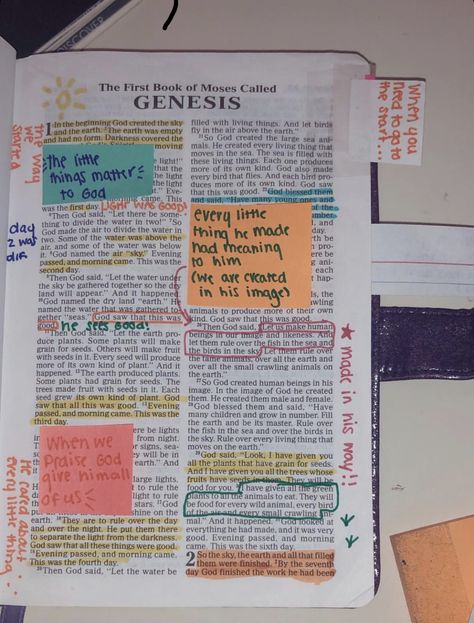 DISCOVER
The First Book of Moses Called
GENESIS
When you
need to go to
the start...
the way
we
started
1 In the beginning God created the sky
and the earth. 2The earth was empty
and had no form. Darkness covered the
the little
things matter
to God
morning came. This
was the first day. LIGHT WAS GOOD!
6Then God said, "Let there be some-
thing to divide the water in two!" 7So
God made the air to divide the water in
two. Some of the water was above the
air, and some of the water was below
it. 8God named the air "sky." Evening
passed, and morning came. This was the
second day.
day
2 was
9Then God said, "Let the water under
the sky be gathered together so the dry
land will appear." And it happened.
10God named the dry land "earth." He
named the water that was gathered to-
gether "seas." God saw that this was
good. he sees Good!
11Then God said, "Let the earth pro-
duce plants. Some plants will make
grain for seeds. Others will make fruit
with seeds in it. Every seed will produce
more of its own kind of plant." And it
happened. 12The earth produced plants.
Some plants had grain for seeds. The
trees made fruit with seeds in it. Each
seed grew its own kind of plant. God
saw that all this was good. 13Evening
passed, and morning came. This was the
third day.
When we
Praise God
give him all
of us
thing on the earth.
them are to rule over the day
and over the night. He put them there
to separate the light from the darkness.
God saw that all these things were good.
19Evening passed, and morning came.
This was the fourth day.
20Then God said, "Let the water be
He cared about
every little thing
filled with living things. And let birds
fly in the air above the earth."
21So God created the large sea ani-
mals. He created every living thing that
moves in the sea. The sea is filled with
these living things. Each one produces
more of its own kind. God also made
every bird that flies. And each bird pro-
duces more of its own kind. God saw
that this was good. 22God blessed them
and said, "Have many young ones and
every little
thing he made
had meaning
to him
(we are created
in his image)
animals to produce more of their own
kind. God saw that this was good.
26Then God said, "Let us make human
beings in our image and likeness. And
let them rule over the fish in the sea and
the birds in the sky. Let them rule over
the tame animals, over all the earth and
over all the small crawling animals on
the earth."
27So God created human beings in his
image. In the image of God he created
them. He created them male and female.
28God blessed them and said, "Have
many children and grow in number. Fill
the earth and be its master. Rule over
the fish in the sea and over the birds in
the sky. Rule over every living thing that
moves on the earth."
29God said, "Look, I have given you
all the plants that have grain for seeds.
And I have given you all the trees whose
fruits have seeds in them. They will be
food for you. 30I have given all the green
plants to all the animals to eat. They will
be food for every wild animal, every bird
of the air and every small crawling ani-
mal." And it happened. 31God looked at
everything he had made, and it was very
good. Evening passed, and morning
came. This was the sixth day.
2 So the sky, the earth and all that filled
them were finished. 2By the seventh
day God finished the work he had been
★ made in his way!!